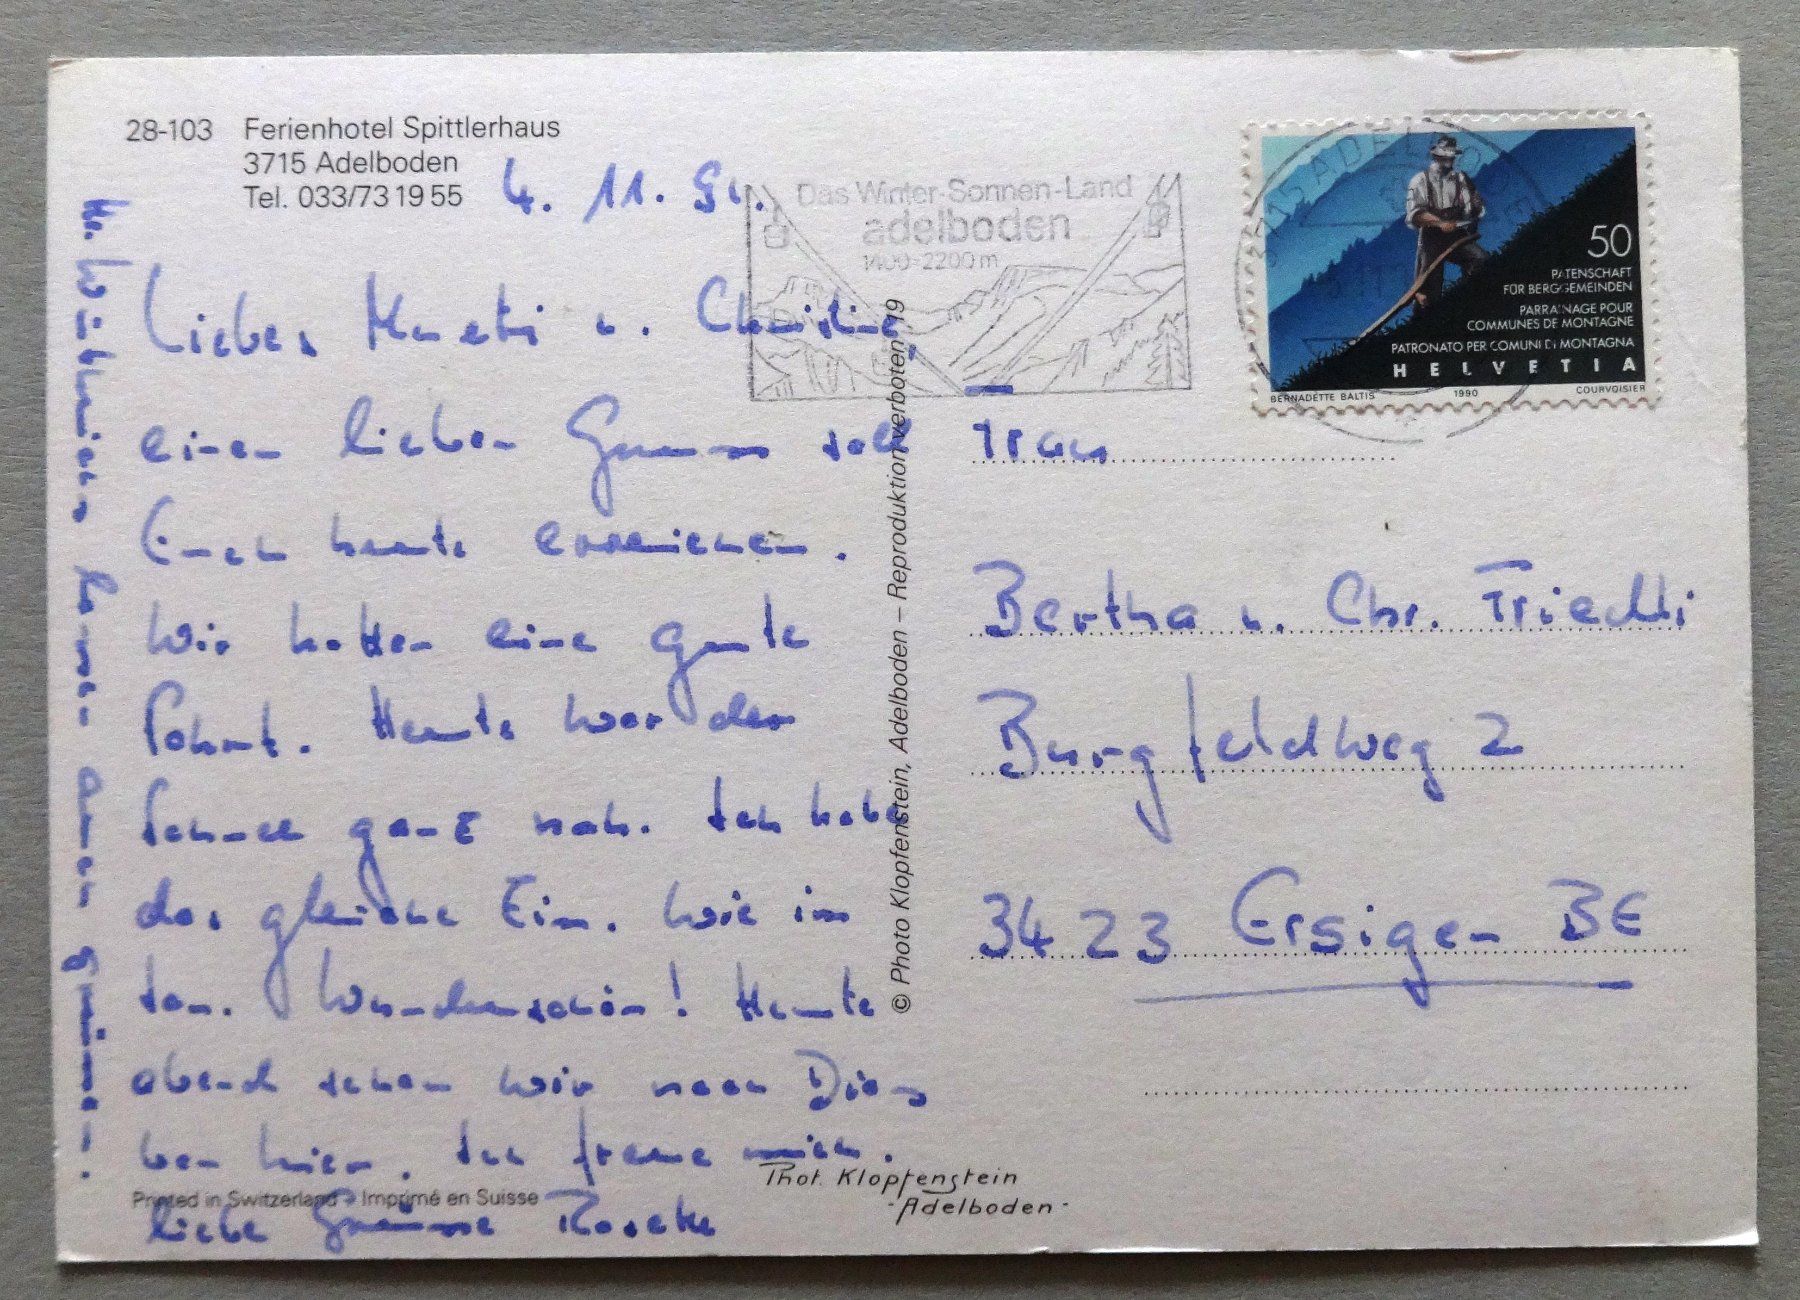 28-103 Ferienhotel Spittlerhaus
3715 Adelboden
Tel. 033/73 19 55
4. 11. 91.
Das Winter-Sonnen-Land
adelboden
1400-2200m
3715 ADELBODEN
50
PATENSCHAFT
FÜR BERGGEMEINDEN
PARRAINAGE POUR
COMMUNES DE MONTAGNE
PATRONATO PER COMUNI DI MONTAGNA
HELVETIA
BERNADETTE BALTIS 1990 COURVOISIER
Liebes u. Christine,
einen lieben Gruss soll
Euch heute erreichen.
Wir hatten eine gute
Fahrt. Heute war der
Schnee ganz nah. Ich habe
das gleiche Zim. wie im
Wunderschön! Heute
abend schon wir nach
ben hier. Ich freue mich.
Liebe Grüsse
Hr. Wüthrich lassen auch grüssen.
© Photo Klopfenstein, Adelboden – Reproduktion verboten 19
Frau
Bertha u. Chr. Friedli
Burgfeldweg 2
3423 Ersigen BE
Printed in Switzerland - Imprimé en Suisse
Phot. Klopfenstein
- Adelboden -